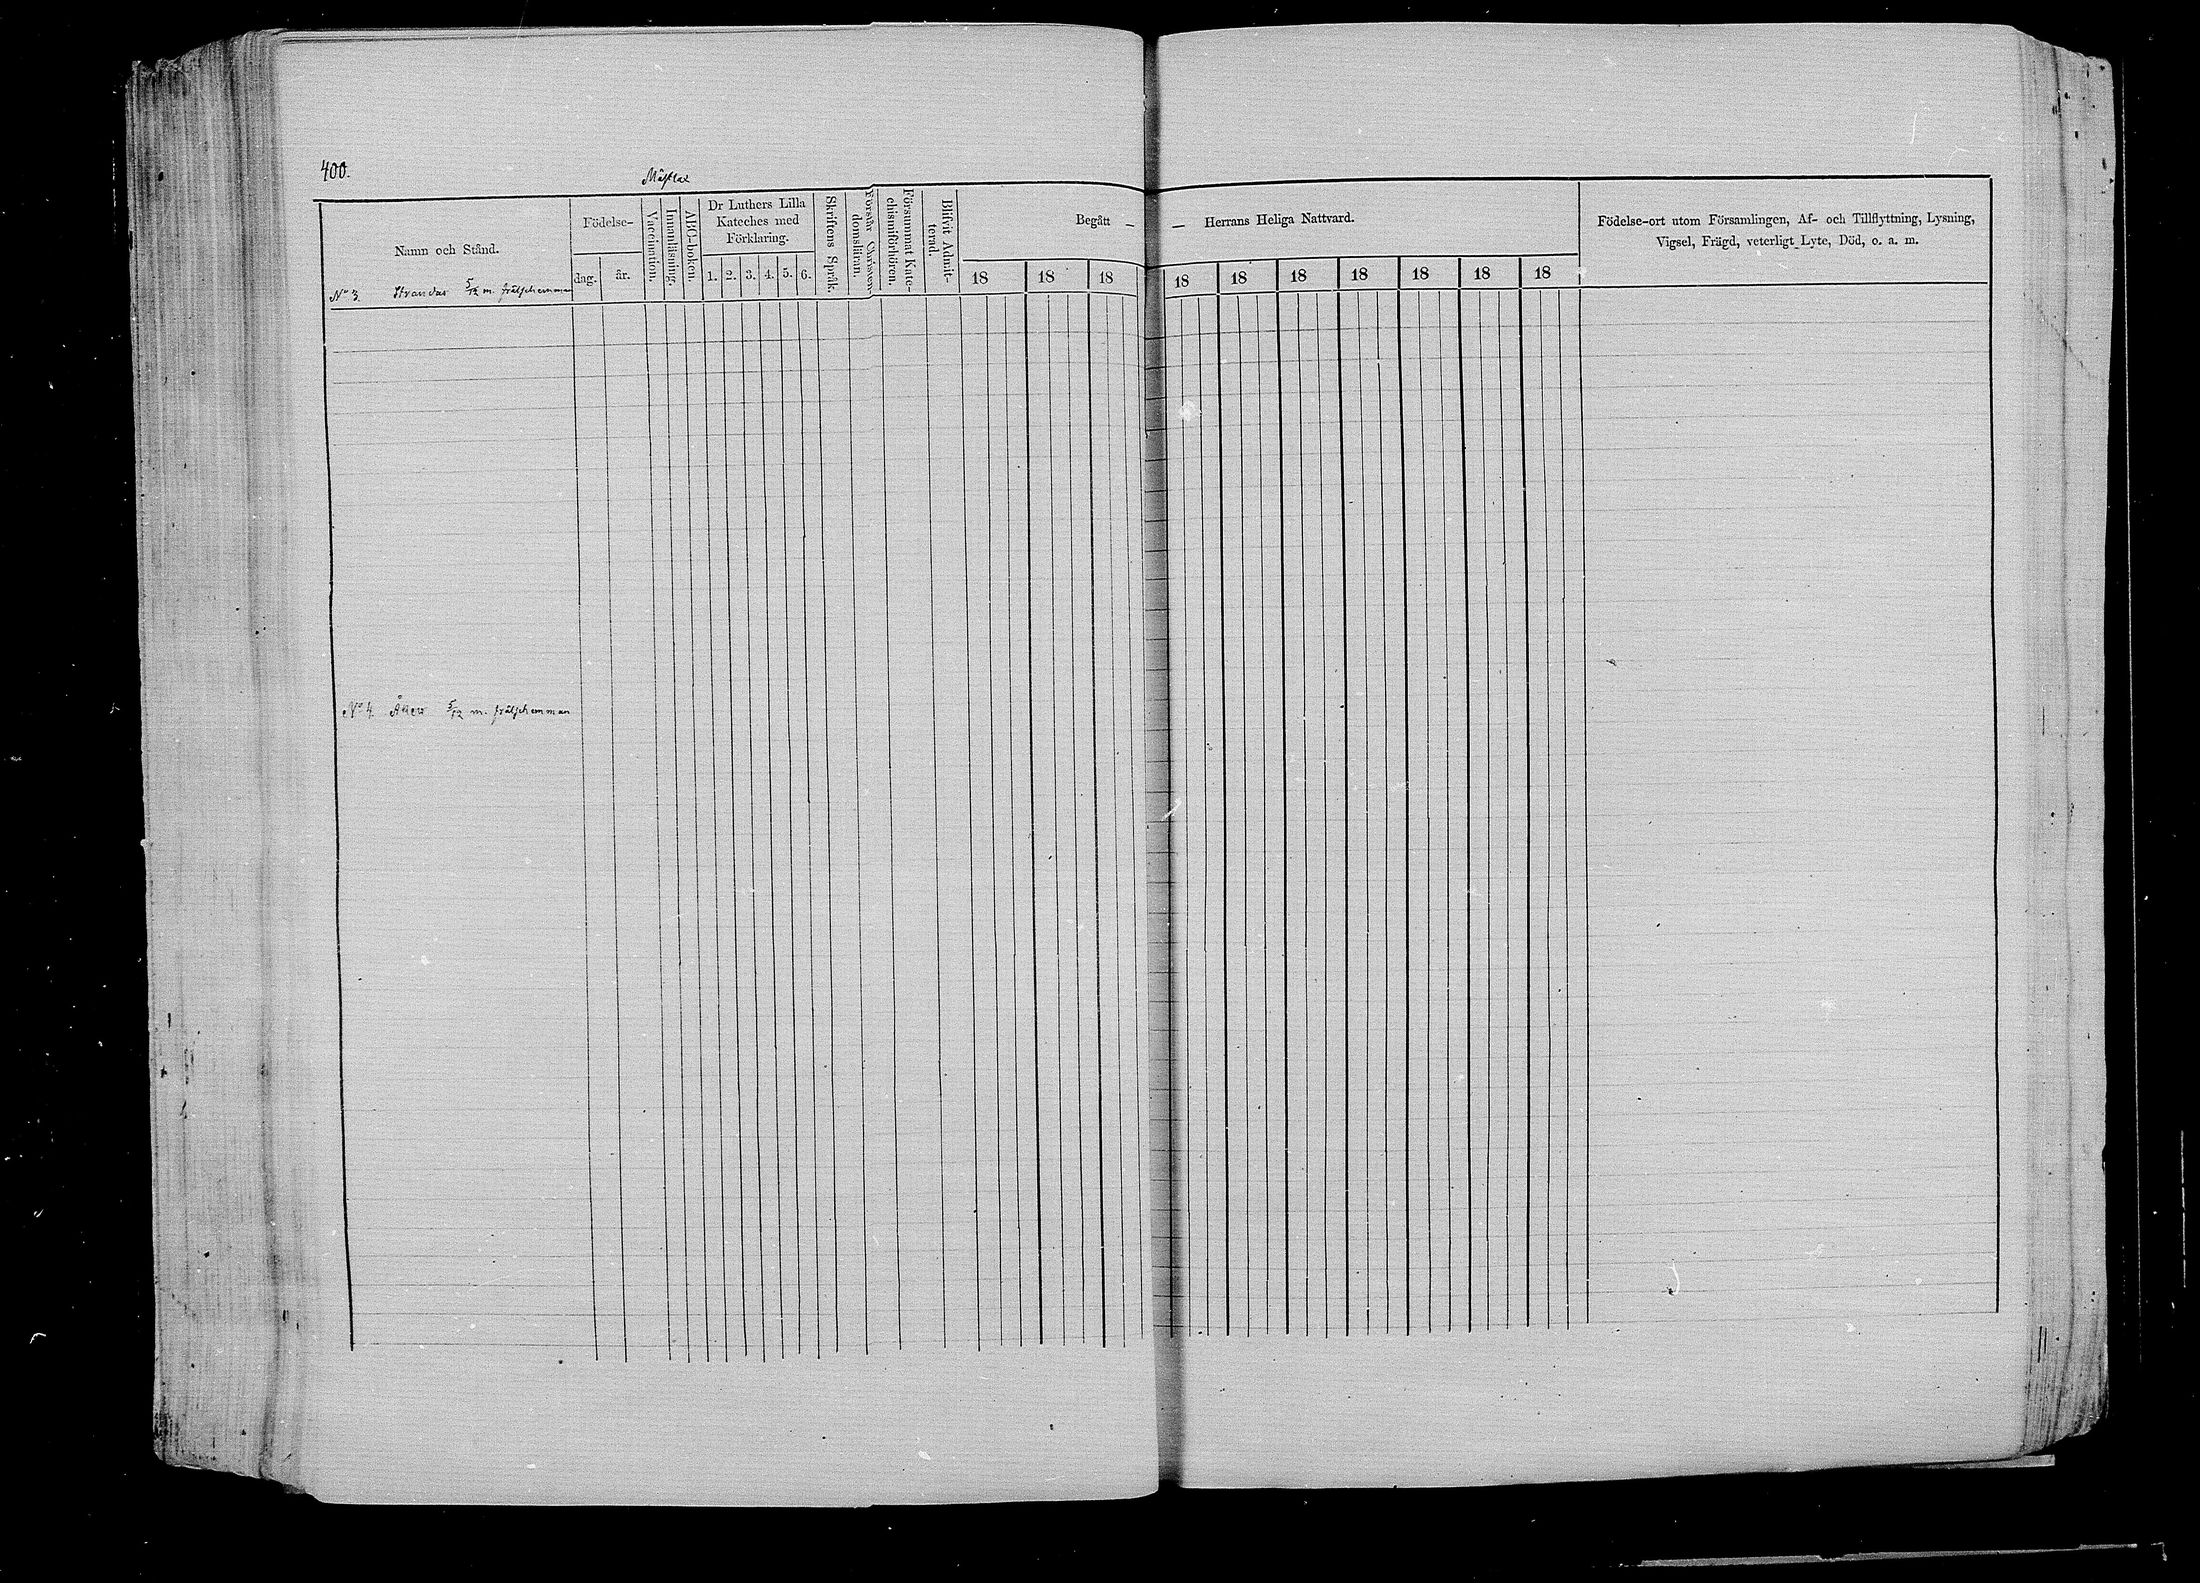 400.
Namn och Stånd.
Födelse-
dag.
år.
Vaccination.
Innanläsning.
ABC-boken.
Dr Luthers Lilla
Kateches med
Förklaring.
1. 2. 3. 4. 5. 6.
Skriftens Språk.
Förstår Christen-
domsläran.
Försummat Kate-
chismiförhören.
Blifvit Admit-
terad.
Begått — — Herrans Heliga Nattvard.
18 18 18 18 18 18 18 18 18 18
Födelse-ort utom Församlingen, Af- och Tillflyttning, Lysning,
Vigsel, Frägd, veterligt Lyte, Död, o. a. m.
No 3. Strandas 5/12 m. frälsehemman
No 4. 5/12 m. frälsehemman